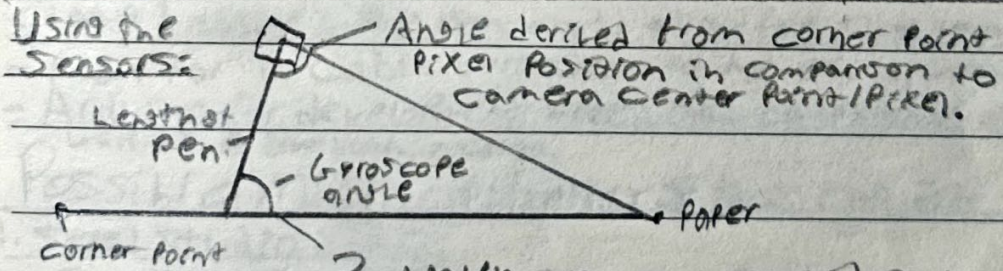 Using the
Sensors:
Angle derived from corner point
Pixel Position in comparison to
camera center Point/Pixel.
Length of
Pen
Gyroscope
angle
Paper
corner point
?